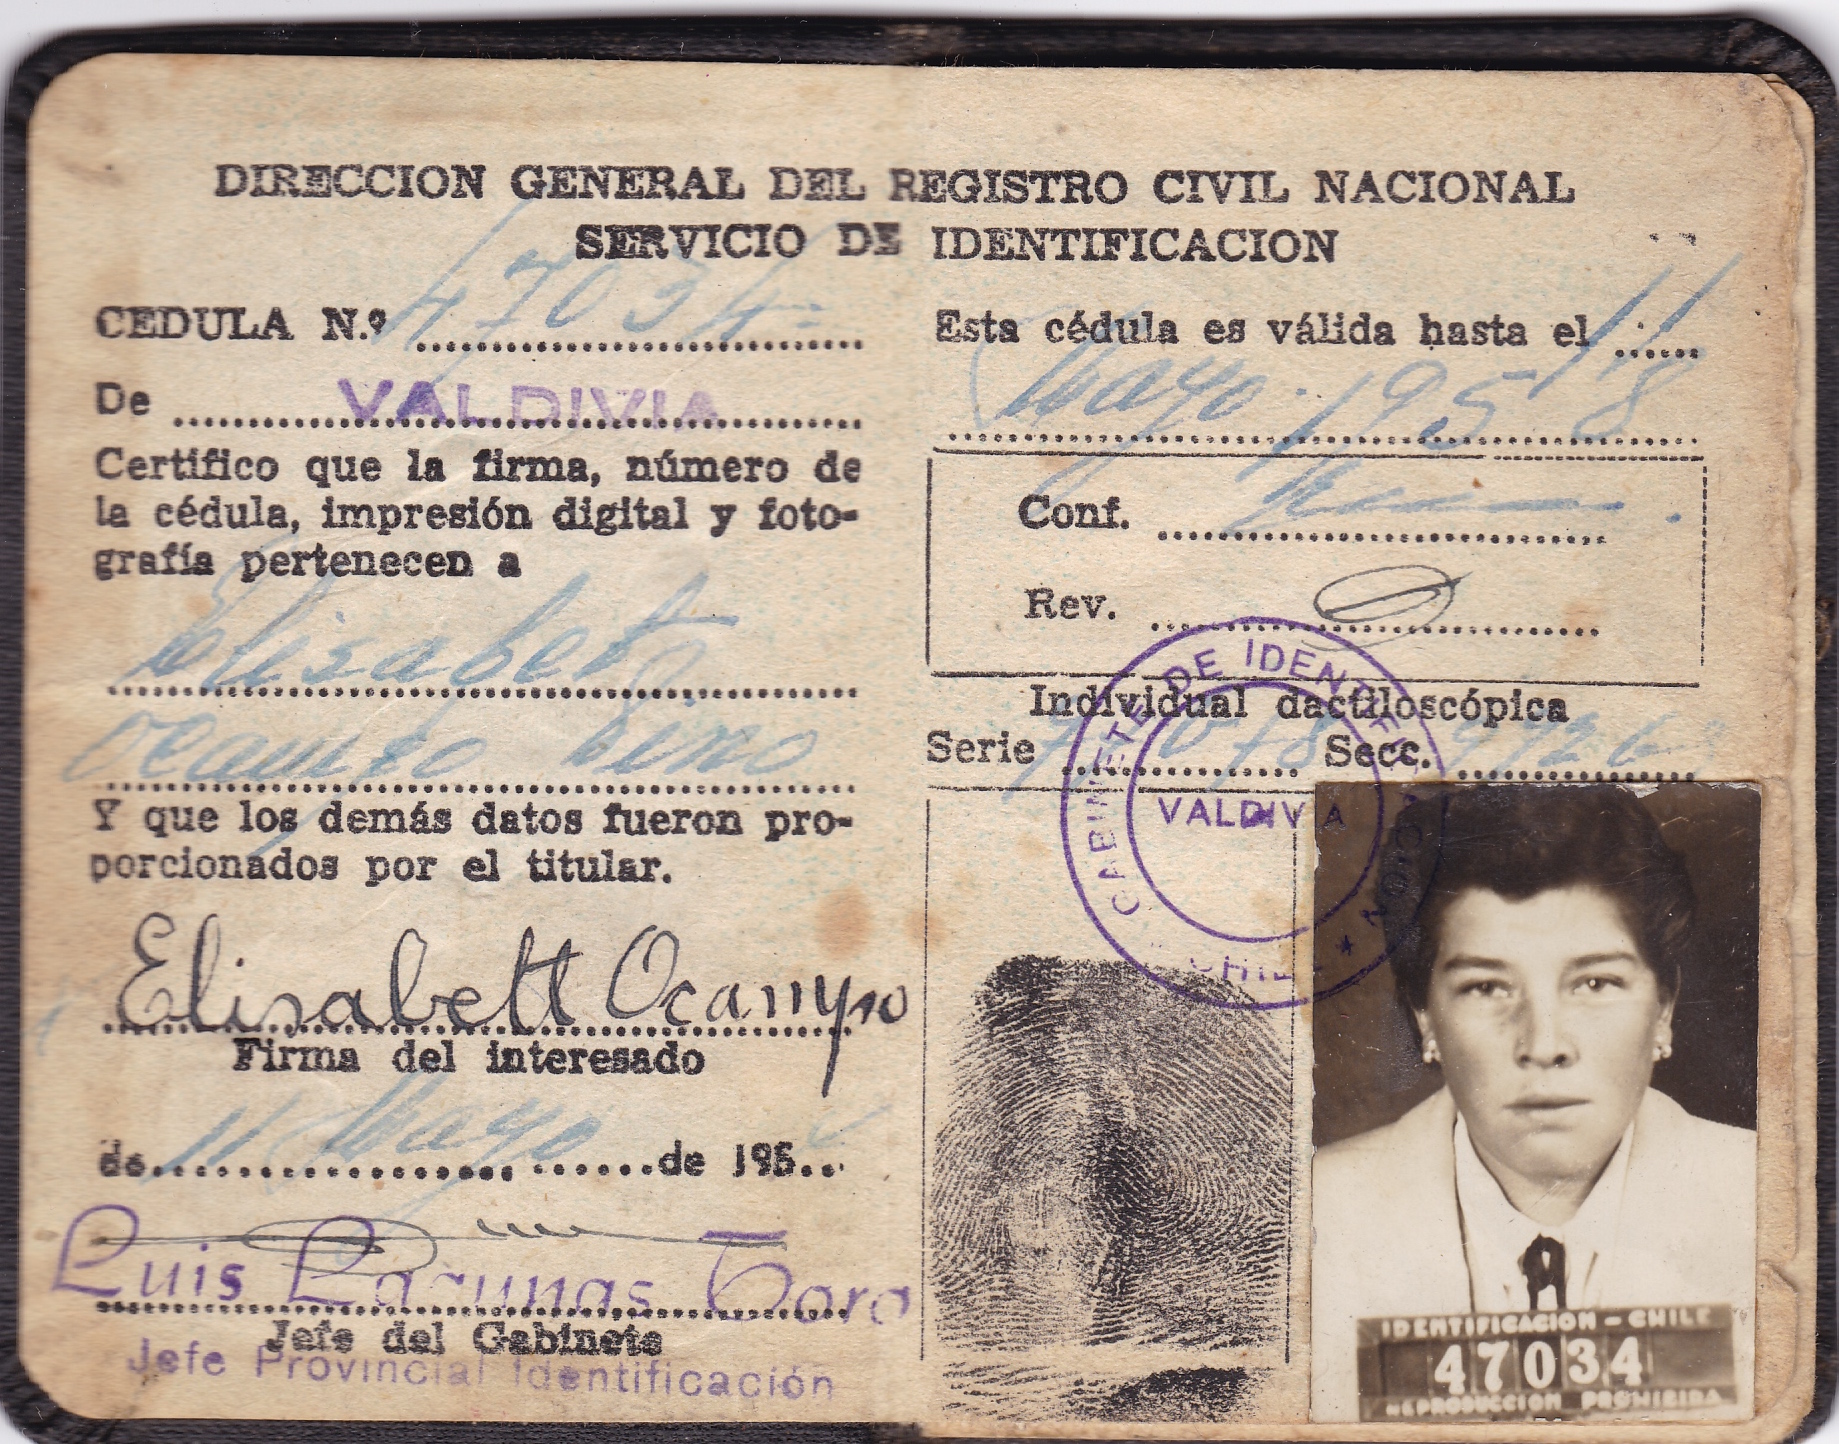 DIRECCION GENERAL DEL REGISTRO CIVIL NACIONAL
SERVICIO DE IDENTIFICACION
CEDULA N.º 47034=
De VALDIVIA
Certifico que la firma, número de
la cédula, impresión digital y foto-
grafía pertenecen a
Elisabet
Ocampo
Y que los demás datos fueron pro-
porcionados por el titular.
Elisabett Ocampo
Firma del interesado
de 11 Mayo de 195
Luis Toro
Jefe del Gabinete
Jefe Provincial Identificación
Esta cédula es válida hasta el 11
Mayo 1958
Conf.
Rev.
Individual dactiloscópica
Serie Secc.
GABINETE DE IDENTIFICACION
VALDIVIA
* CHILE *
IDENTIFICACION - CHILE
47034
REPRODUCCION PROHIBIDA